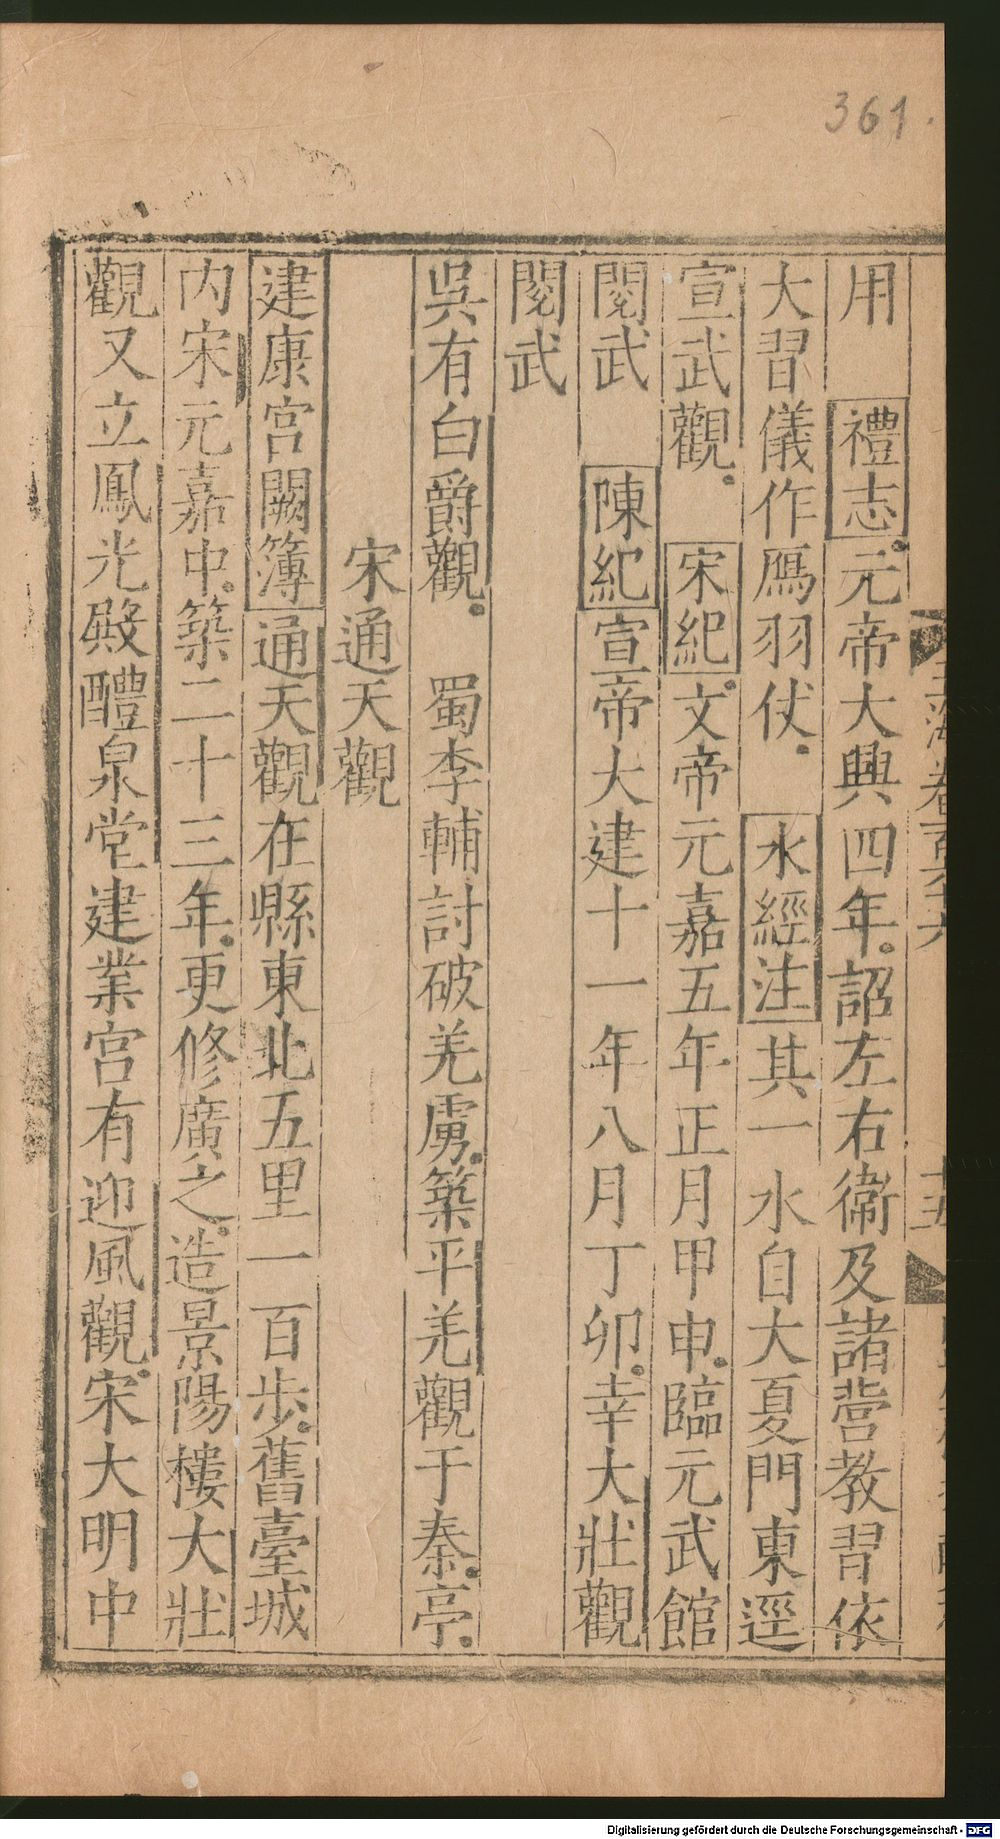 361.
用　禮志元帝大興四年詔左右衞及諸營教習依
大習儀作鴈羽仗　水經注其一水自大夏門東逕
宣武觀　宋紀文帝元嘉五年正月甲申臨元武館
閱武　陳紀宣帝大建十一年八月丁卯幸大壯觀
閱武
吳有白爵觀　蜀李輔討破羌虜築平羌觀于秦亭
宋通天觀
建康宮闕簿通天觀在縣東北五里一百步舊臺城
内宋元嘉中築二十三年更修廣之造景陽樓大壯
觀又立鳳光殿醴泉堂建業宮有迎風觀宋大明中
Digitalisierung gefördert durch die Deutsche Forschungsgemeinschaft - DFG